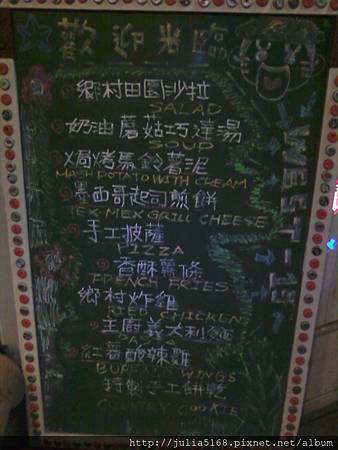 歡迎光臨
鄉村田園沙拉
SALAD
奶油蘑菇巧達湯
SOUP
焗烤馬鈴薯泥
MASH POTATO WITH CREAM
墨西哥起司煎餅
TEX-MEX GRILL CHEESE
手工披薩
PIZZA
香酥薯條
FRENCH FRIES
鄉村炸雞
FRIED CHICKEN
主廚義大利麵
PASTA
紅醬酸辣雞
BUFFALO WINGS
特製手工餅乾
COUNTRY COOKIE
WEST
http://julia5168.pixnet.net/album